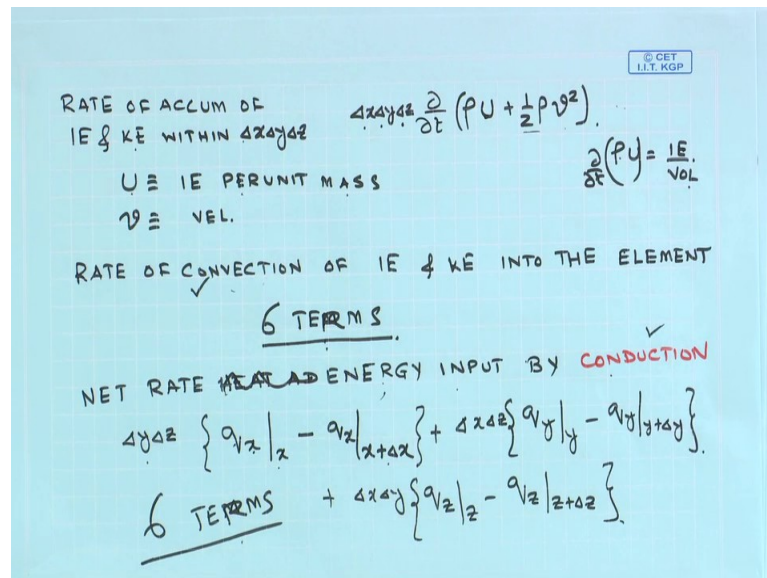 © CET
I.I.T. KGP
RATE OF ACCUM OF ΔxΔyΔz ∂/∂t (ρU + 1/2 ρv²).
IE & KE WITHIN ΔxΔyΔz
∂/∂t (ρU) = IE/VOL
U ≡ IE PER UNIT MASS
v ≡ VEL.
RATE OF CONVECTION OF IE & KE INTO THE ELEMENT
6 TERMS.
NET RATE ENERGY INPUT BY CONDUCTION
ΔyΔz {q_x|_x - q_x|_x+Δx} + ΔxΔz {q_y|_y - q_y|_y+Δy}
6 TERMS + ΔxΔy {q_z|_z - q_z|_z+Δz}.